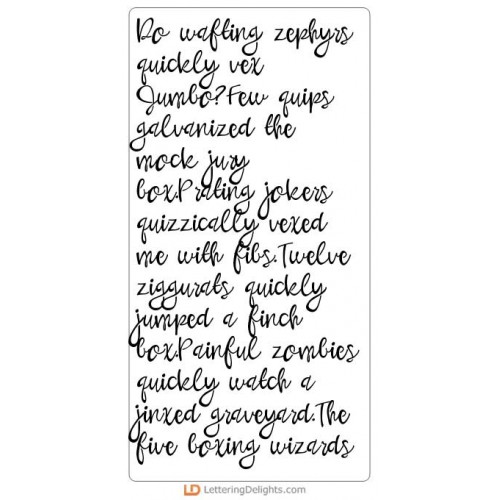 Do wafting zephyrs
quickly vex
Jumbo?Few quips
galvanized the
mock jury
box.Prating jokers
quizzically vexed
me with fibs.Twelve
ziggurats quickly
jumped a finch
box.Painful zombies
quickly watch a
jinxed graveyard.The
five boxing wizards
LD LetteringDelights.com